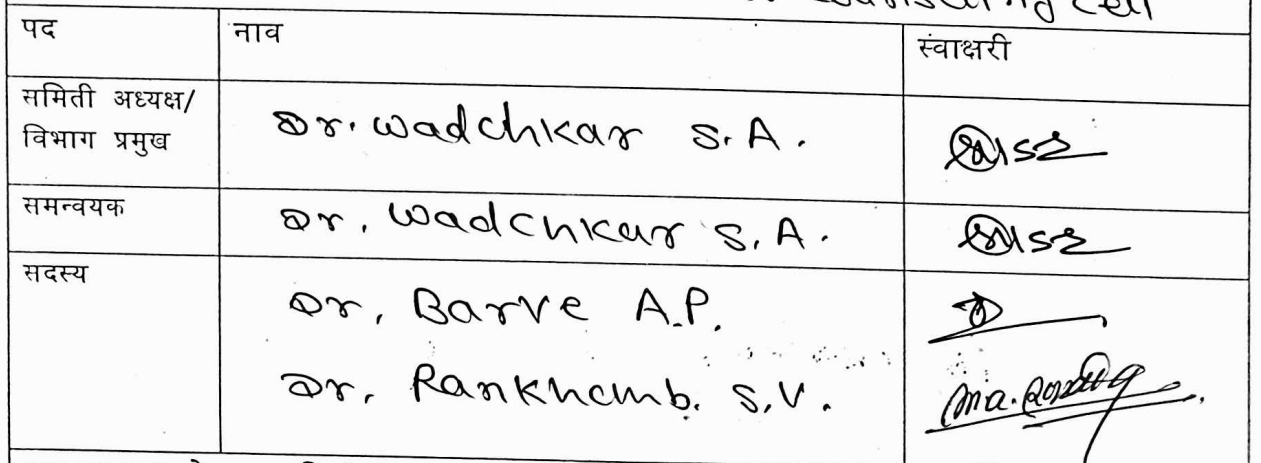 Counselling Cell
पद नाव स्वाक्षरी
समिती अध्यक्ष/
विभाग प्रमुख Dr. Wadchkar S. A.
समन्वयक Dr. Wadchkar S. A.
सदस्य
Dr. Barve A.P.
Dr. Rankhamb. S.V.